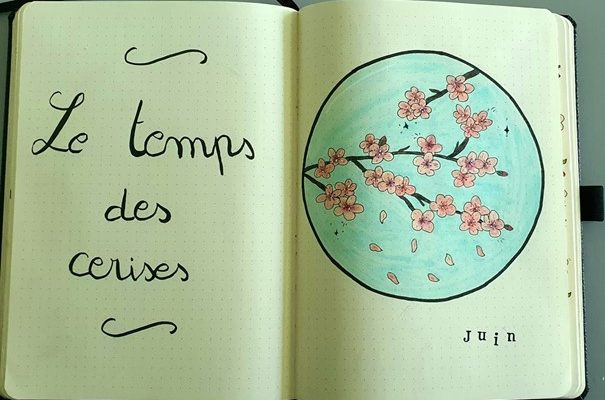 Le temps
des
cerises
Juin